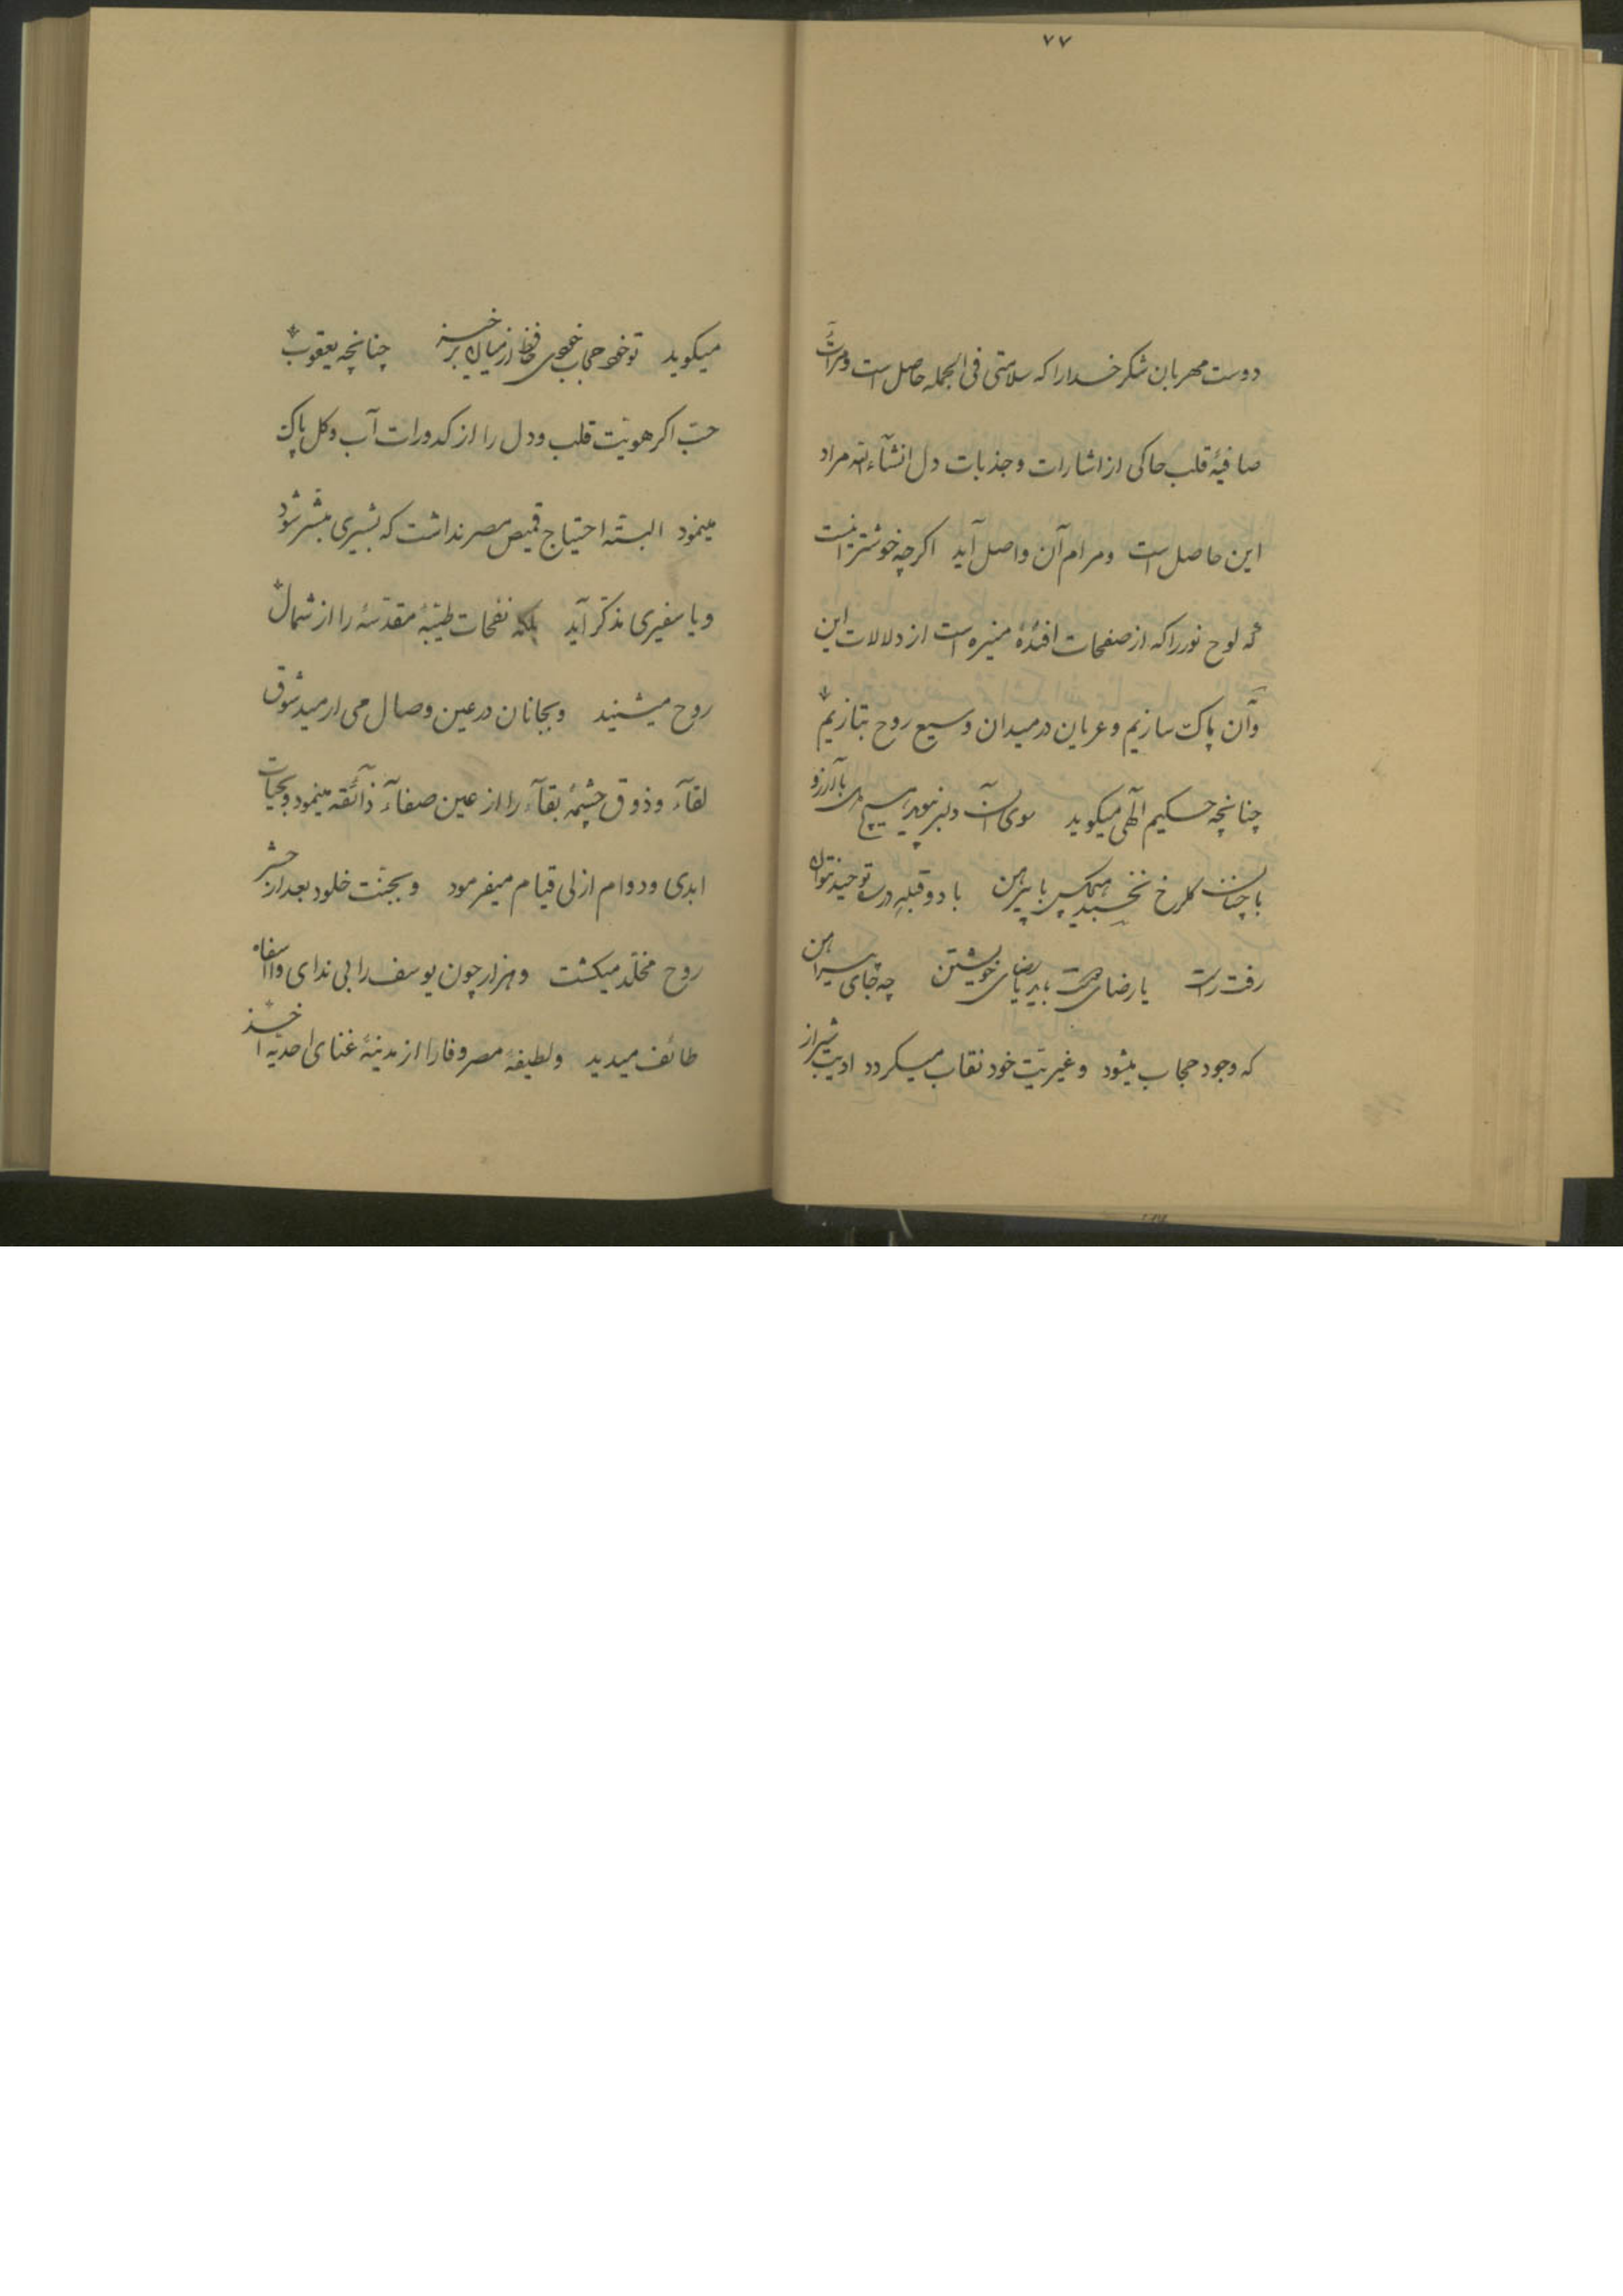 ۷۷
دوست مهربان شکر خدا را که سلامتی فی الجمله حاصل است و مرآت
صافیهٔ قلب حاکی از اشارات و جذبات دل انشآءالله مراد
این حاصل است و مرام آن واصل آید اکرچه خوشتر اینست
که لوح نور را که از صفحات افئدهٔ منیره است از دلالات این
و آن پاک سازیم و عریان در میدان وسیع روح بتازیم
چنانچه حکیم آلهی میکوید سوی آن دلبر نپوید هیچ دل با آرزو
با چنان کلرخ نخسبد هیچکس با پیرهن با دو قبله در ره توحید نتوان
رفت راست یا رضای دوست باید یا رضای خویشتن چه جای پیراهن
که وجود حجاب میشود و غیریّت خود نقاب میکردد ادیب شیراز
میکوید تو خود حجاب خودی حافظ از میان برخیز چنانچه یعقوب
حبّ اکر هویّت قلب و دل را از کدورات آب و کل پاک
مینمود البتّه احتیاج قمیص مصر نداشت که بشیری مبشّر شود
و یا سفیری مذکّر آید بلکه نفحات طیّبهٔ مقدّسه را از شمال
روح میشنید و بجانان در عین وصال می ارمید شوق
لقآء و ذوق چشمهٔ بقآء را از عین صفآء ذآئقه مینمود و بحیات
ابدی و دوام ازلی قیام میفرمود و بجنّت خلود بعد از حشر
روح مخلّد میکشت و هزار چون یوسف را بی ندای وااسفاه
طائف میدید و لطیفهٔ مصر وفا را از مدینهٔ غنای احدیّه اخذ